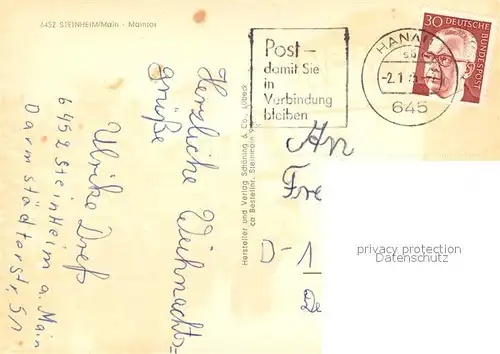 6452 STEINHEIM/Main - Maintor
Herzliche Weihnachts=
grüße
Ulrike Dreß
6452 Steinheim a. Main
Darmstädterstr. 51
Hersteller und Verlag Schöning & Co., Lübeck
Bestellnr. Steinheim
Post–
damit Sie
in
Verbindung
bleiben
HANAU
-2.1.
645
30 DEUTSCHE BUNDESPOST
An
Fre
D-1
De
privacy protection
Datenschutz